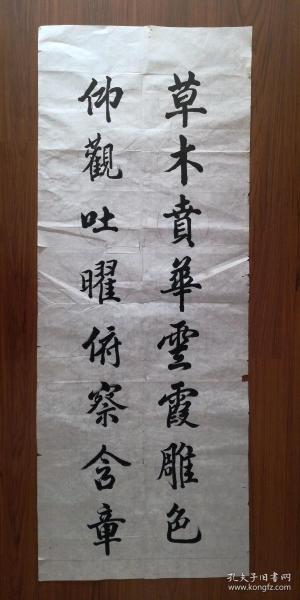 草木賁華雲霞雕色
仰觀吐曜俯察含章
孔夫子旧书网
www.kongfz.com